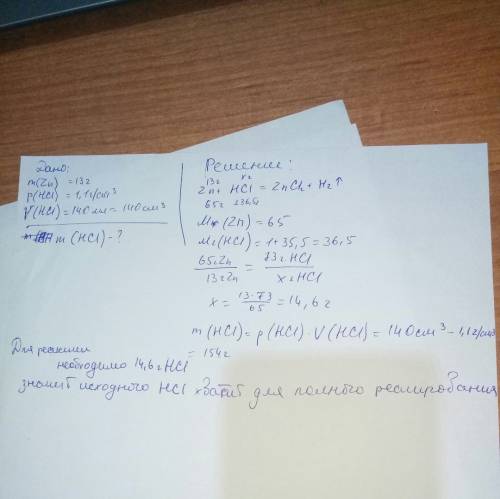 Дано:
m(Zn) = 13г
ρ(HCl) = 1,1г/см³
V(HCl) = 140мл = 140см³
m(HCl) - ?
Решение:
13г xг
Zn + HCl = ZnCl₂ + H₂↑
65г 2·36,5
Mr(Zn) = 65
Mr(HCl) = 1 + 35,5 = 36,5
65гZn / 13гZn = 73г.HCl / xгHCl
x = 13·73 / 65 = 14,6г
m(HCl) = ρ(HCl) · V(HCl) = 140см³ - 1,1г/см³
= 154г
Для реакции
необходимо 14,6г HCl
значит исходного HCl хватит для полного реагирования